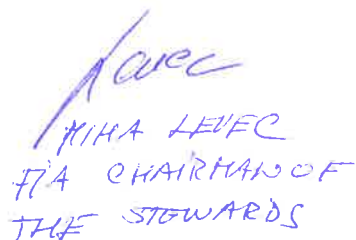 Levec
MIHA LEVEC
FIA CHAIRMAN OF
THE STEWARDS